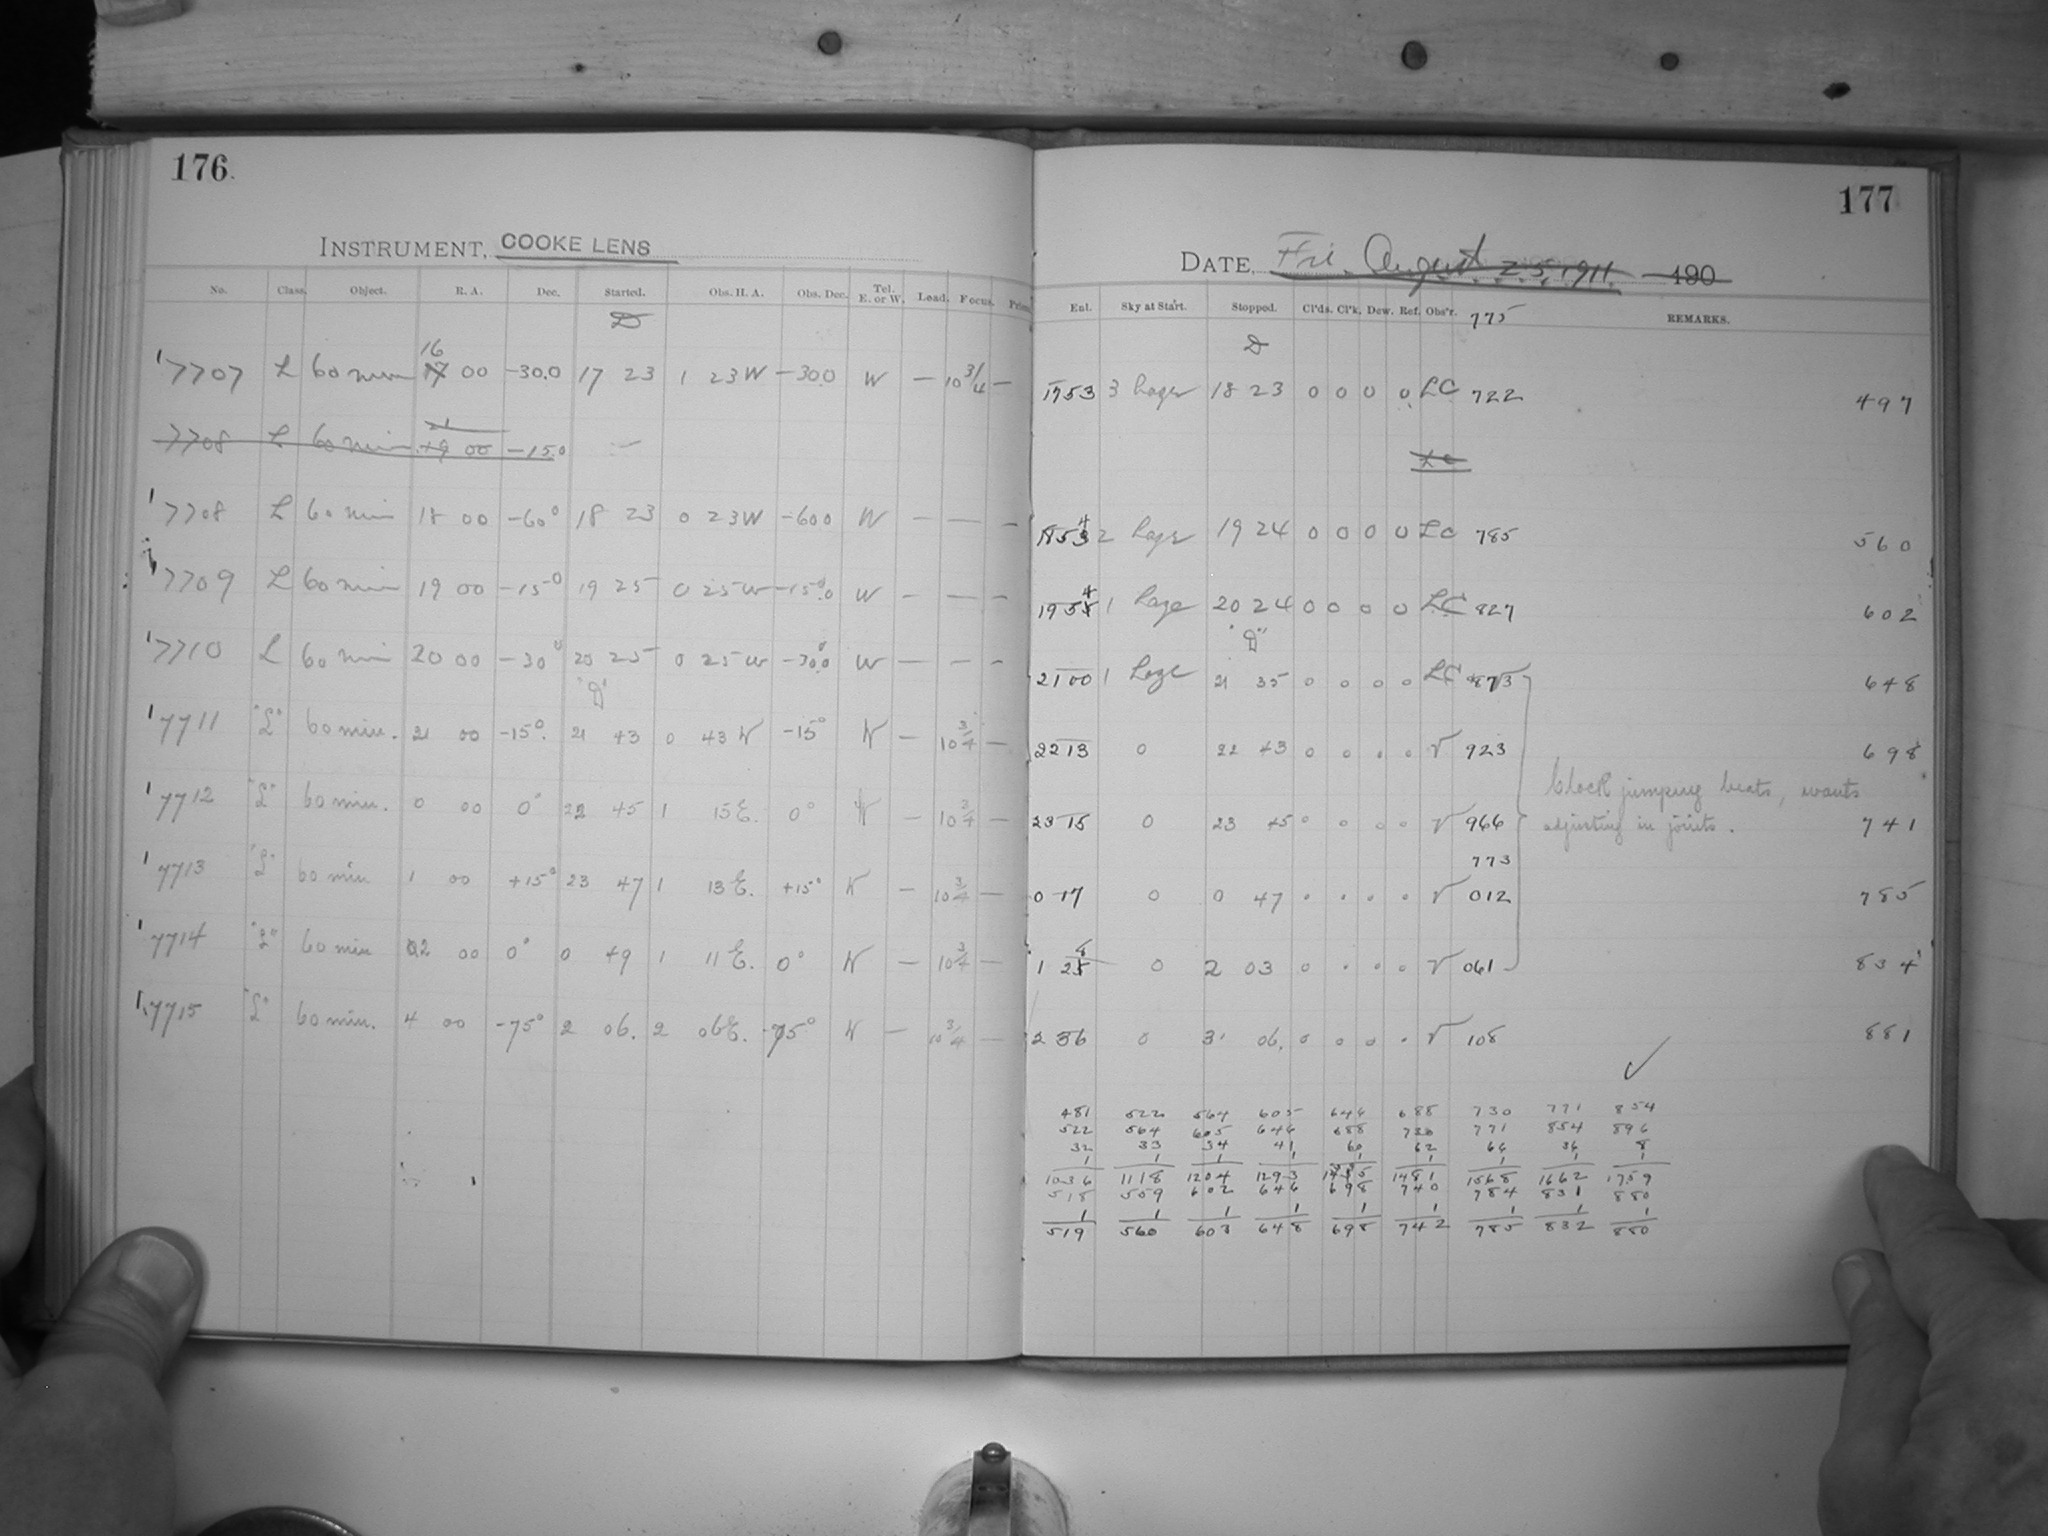 176.
INSTRUMENT, COOKE LENS
No. Class. Object. R. A. Dec. Started. Obs. H. A. Obs. Dec. Tel. E. or W. Lead. Focus.
D
16
7707 L 60 min 17 00 -30.0 17 23 1 23 W -300 W — 10 3/4 —
21
7708 L 60 min 19 00 -15.0 —
7708 L 60 min 18 00 -60° 18 23 0 23 W -600 W — — —
7709 L 60 min 19 00 -15° 19 25 0 25 W -15.0 W — — —
7710 L 60 min 20 00 -30° 20 25 0 25 W -30.0 W — — —
7711 "L" 60 min. 21 00 -15°. 21 43 0 43 W -15° W — 10 3/4 —
7712 "L" 60 min. 0 00 0° 22 45 1 15 E. 0° W — 10 3/4 —
7713 "L" 60 min 1 00 +15° 23 47 1 13 E. +15° W — 10 3/4 —
7714 "L" 60 min 02 00 0° 0 49 1 11 E. 0° W — 10 3/4 —
7715 "L" 60 min. 4 00 -75° 2 06. 2 06 E. -75° W — 10 3/4 —
177
DATE, Fri. August 25, 1911. 190
Ent. Sky at Start. Stopped. Cl'ds. Cl'k. Dew. Ref. Obs'r. 775 REMARKS.
D
1753 3 hazy 18 23 0 0 0 0 LC 722 497
LC
4
1853 2 hazy 19 24 0 0 0 0 LC 785 560
4
1955 1 haze 20 24 0 0 0 0 LC 827 602
2100 1 haze 21 35 0 0 0 0 LC 873 648
2213 0 22 43 0 0 0 0 V 923 698
Clock jumping beats, wants
2315 0 23 45 0 0 0 0 V 966 adjusting in joints. 741
773
0 17 0 0 47 0 0 0 0 V 012 785
1 25 0 2 03 0 0 0 0 V 061 834
2 36 0 3 06. 0 0 0 0 V 108 881
481 522 564 605 646 688 730 771 854
522 564 605 646 688 730 771 854 896
32 33 34 41 60 62 66 36 8
1 1 1 1 1 1 1 1 1
1036 1118 1204 1293 1395 1481 1568 1662 1759
518 559 602 646 698 740 784 831 880
1 1 1 1 1 1 1 1 1
519 560 603 648 698 742 785 832 880